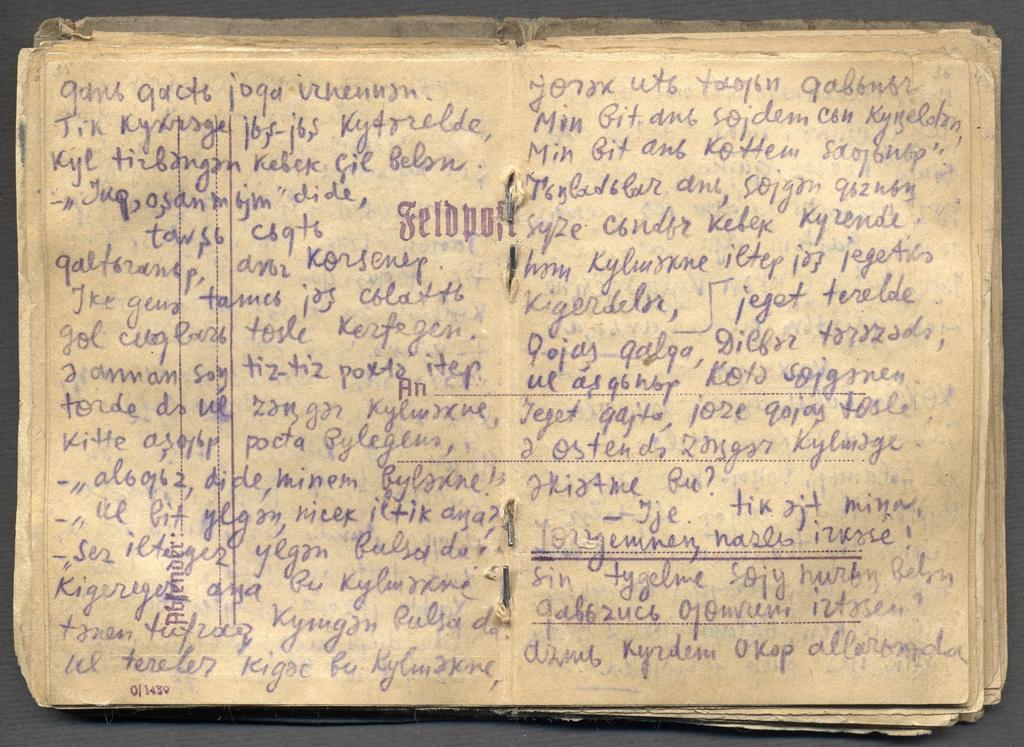 qanь qactь joqa irnennən.
Tik kykrəge jьş-jьş kytərelde,
kyl tirbəngən kebek çil belən.
dide,
tawşь cьqtь
qaltьranьp, kərsenep.
Ike genə tamcь jəş cьlattь
gөl cuqlarь tөsle kerfegen.
ə annan soꞑ tiz-tiz itep
tөrde də ul zəꞑgər kylməkne,
kitte aşьqьp pocta bylegenə,
-„alьgьz, dide, minem byləkne!“
-„Ul bit ylgən, nicek iltik aꞑa?
-„Sez iltegez ylgən bulsa da!
Kigezegez aꞑa bu kylməkne
tənen tufraq kymgən bulsa da.
Ul tereler kigəc bu kylməkne,
Feldpost
An
Absender:
0/1439
jөrək utь taoьn qabьnьr
Min bit anь sөjdem cьn kyꞑeldən,
Min bit anь kөttem saoьnьp“.
Tьꞑladьlar anь, sөjgən qьznьꞑ
syze cьndьr kebek kyrende
həm kylməkne iltep jəş jegetkə
kigezdelər, jeget terelde
Qojaş qalqa, Dilbər tərəzədə,
ul aşqьnьp kөtə sөjgənen.
Jeget qajta, jөze qojaş tөsle
ə өstendə zəꞑgər kylməge
əkiətme bu?
— Ije. tik əjt miꞑa,
jөrəgemneꞑ nazlь irkəse!
Sin tygelme sөjy nurьꞑ belən
qabьzucь ojomnun irtəsen?
azmь kyrdem okop allarьnda